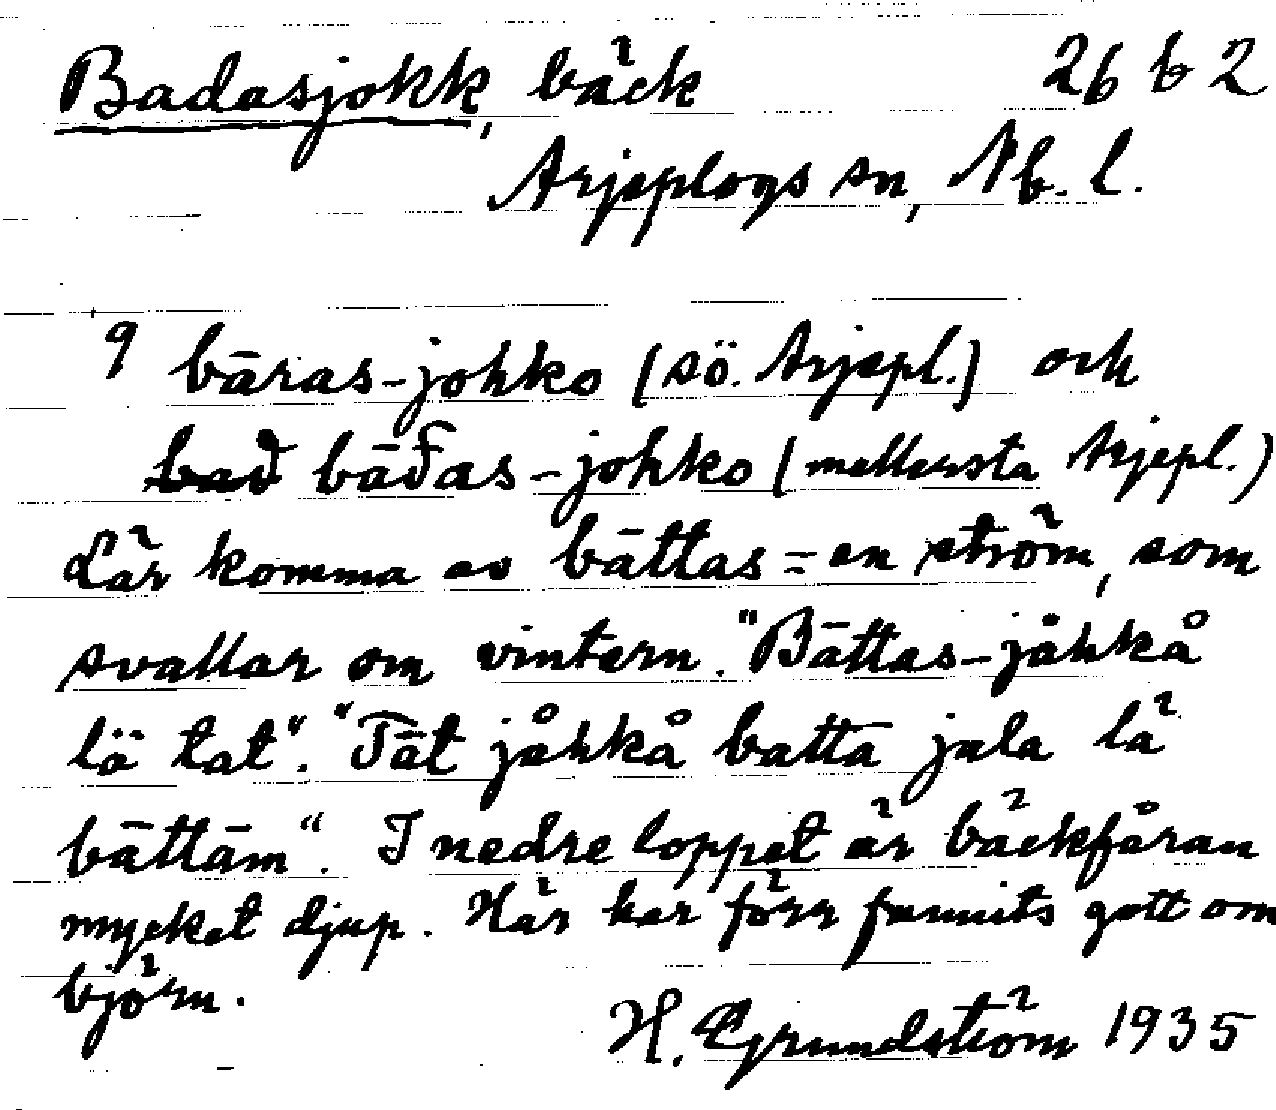 Badasjokk, bäck 26 b 2
Arjeplogs sn, Nb. l.
9 bāras-johko (sö. Arjepl.) och
bāđas-johko (mellersta Arjepl.)
Lär komma av bāttas = en ström, som
svallar om vintern. "Bāttas-jåhkå
lä tat". "Tāt jåhkå batta jala lä
bāttām". I nedre loppet är bäckfåran
mycket djup. Här har förr funnits gott om
björn.
H. Grundström 1935